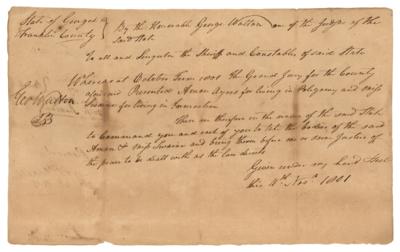 State of Georgia
Franklin County
By the Honorable George Walton on of the Judges of the
said State
To all and Singular the Sheriff and Constables of said State
Whereas at October Term 1801 the Grand Jury for the County
aforesaid Presented Aman Ayres for living in Poligamy and miss
for living in Fornication
Geo Walton
These are therefore in the name of the said State
to Command you and each of you to take the bodies of the said
Aman & miss and bring them before me or some Justice of
the peace to be dealt with as the law directs
Given under my hand Seal
this 4th Novr 1801